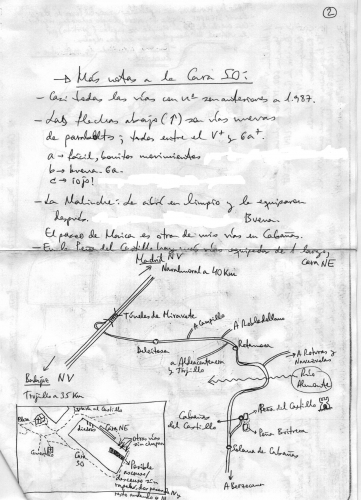 2
→ Más notas a la Cara SO:
- Casi todas las vías con nº son anteriores a 1.987.
- Las flechas abajo (↑) son vías nuevas
de parabolts; todas entre el V+ y 6a+.
a → fácil, bonitos movimientos
b → buena. 6a.
c → ¡ojo!
- La Malinche: Se abrió en limpio y la equiparon
después. Buena.
El paseo de Moica es otra de mis vías en Cabañas.
- En la Peña del Castillo hay una vía equipada de 1 largo,
cara NE
Madrid NV
Navalmoral a 40 Km
Túneles de Miravete
A Campillo
A Robledollano
Deleitosa
Retamosa
a Aldeacentenera
y Trujillo
A Roturas y
Navezuelas
Río
Almonte
Badajoz NV
Trujillo a 35 Km
Cabañas
del Castillo
Peña del Castillo
Peña Buitrera
Solana de Cabañas
A Berzocana
Cara NE
Cara
SO
Otras vías
sin chapar
Posible